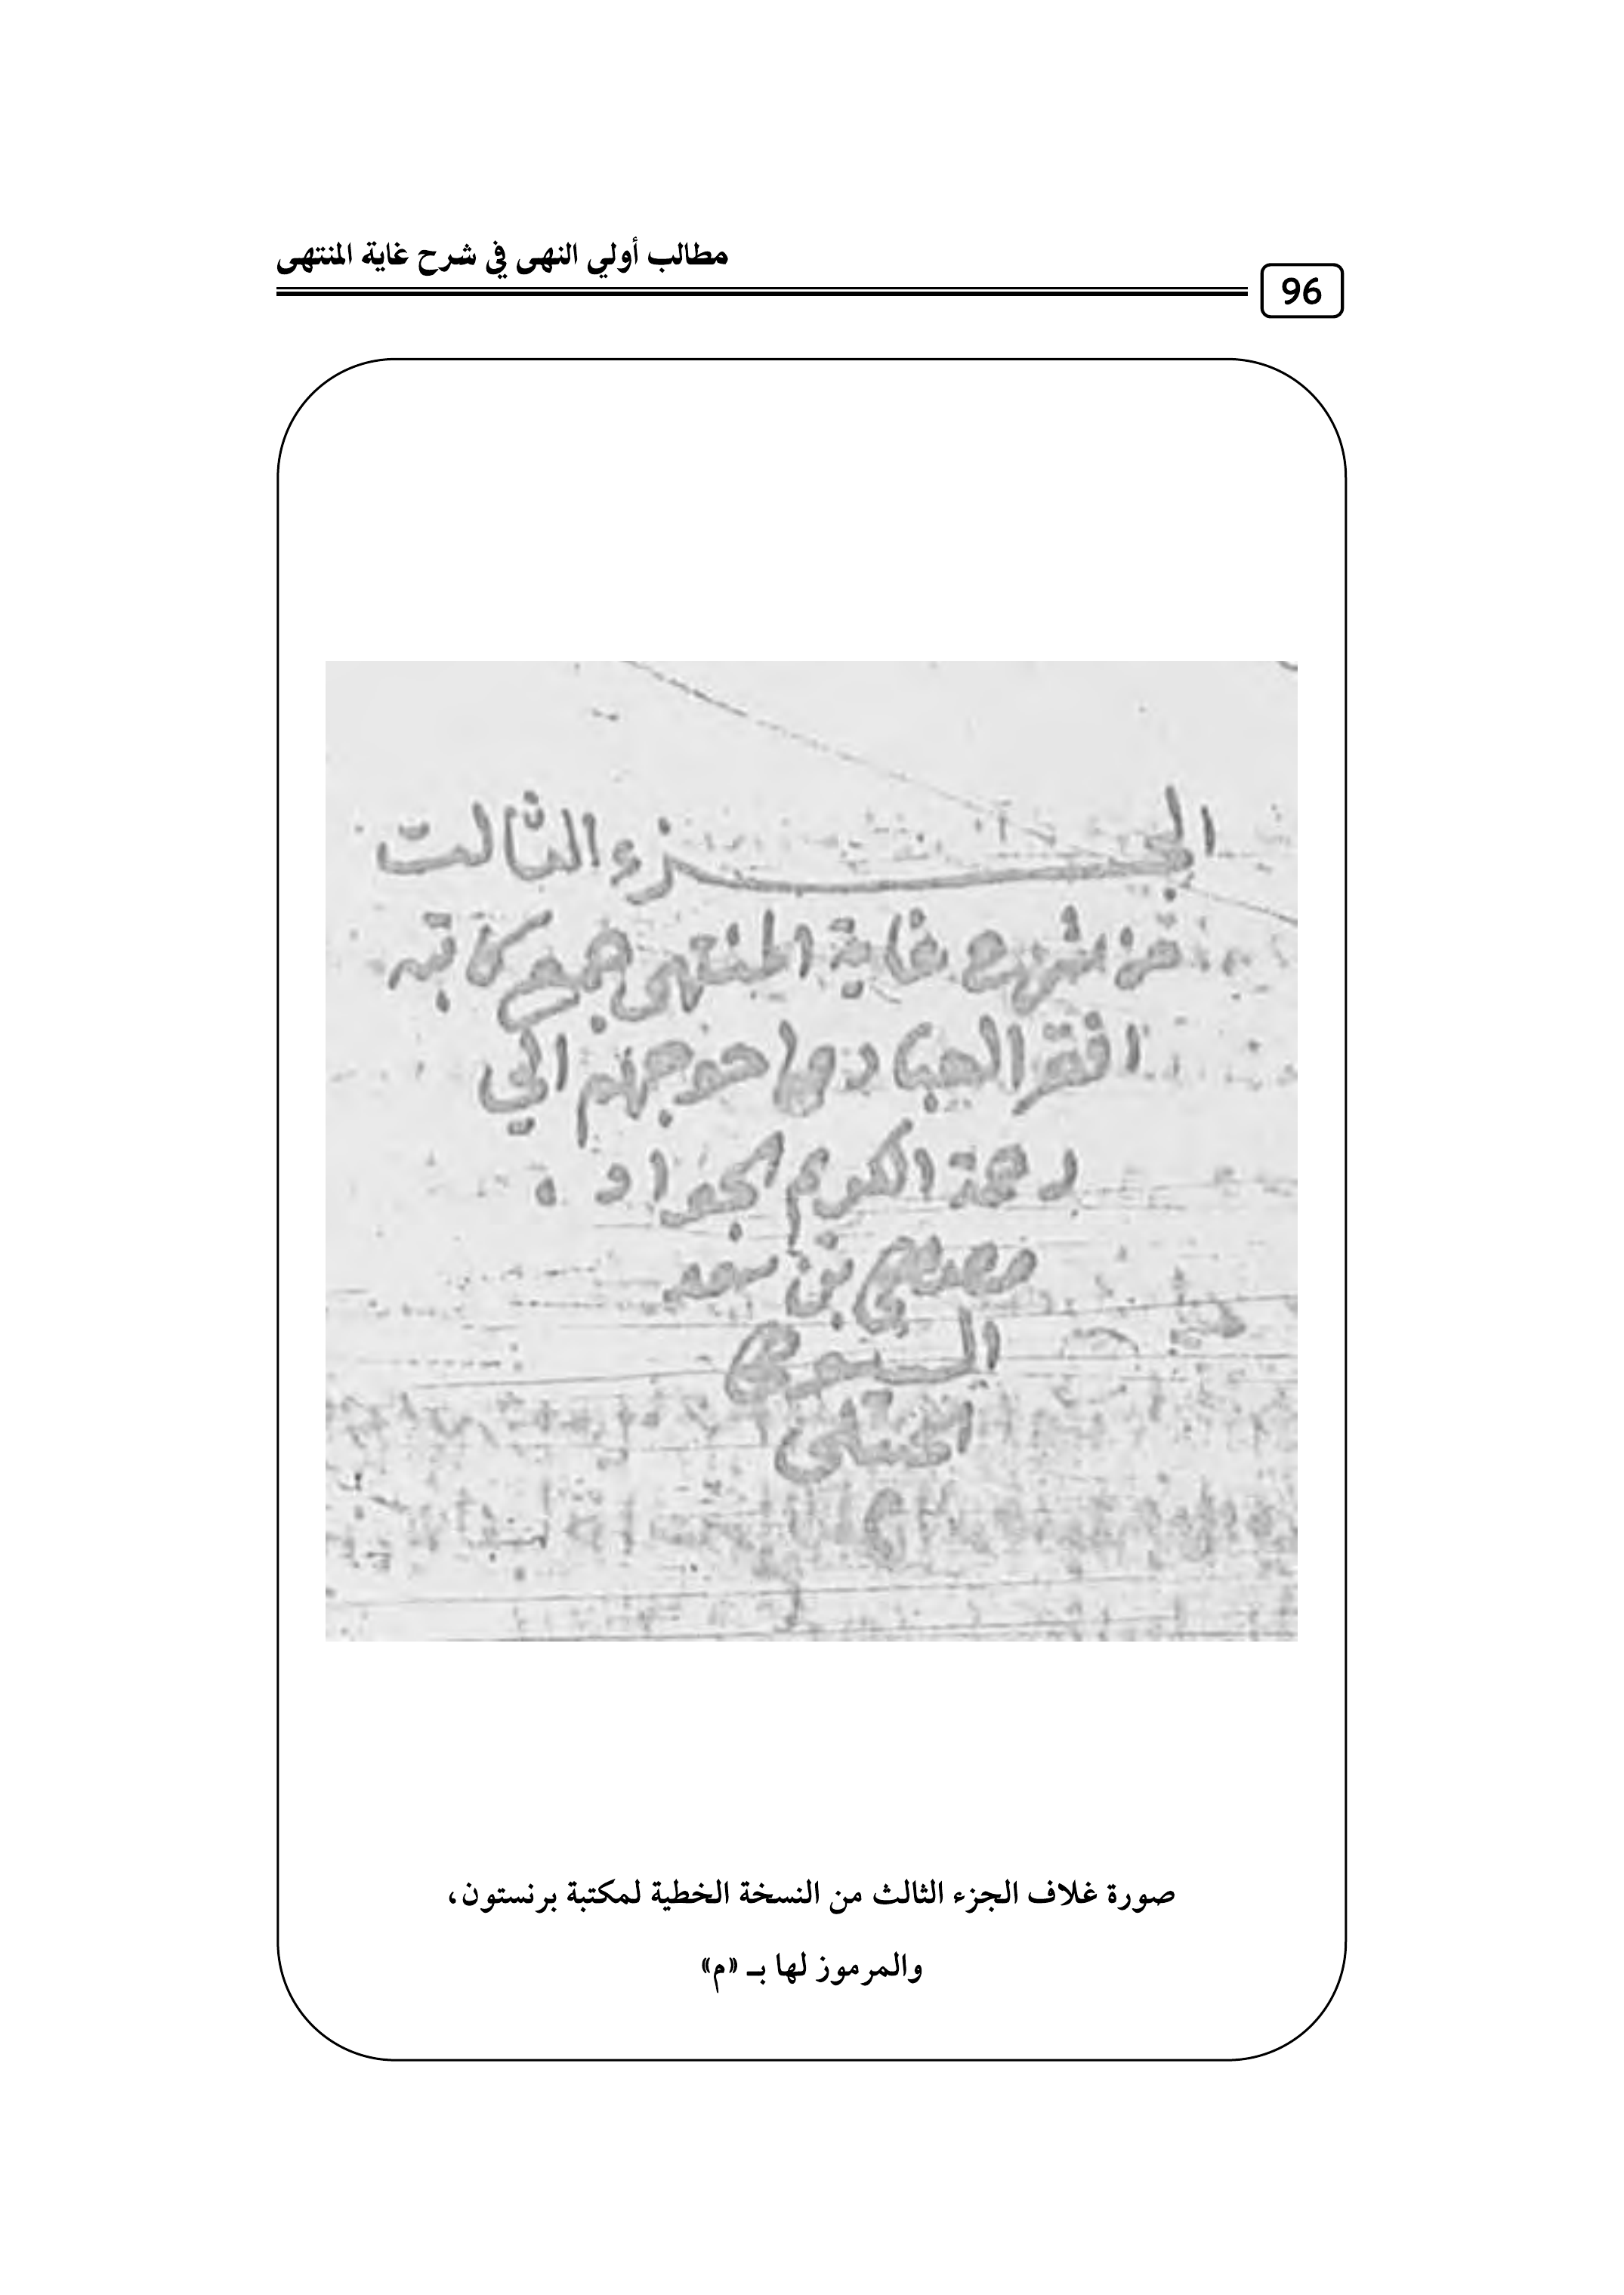 مطالب أولي النهى في شرح غاية المنتهى
96
الجزء الثالث
من شرح غاية المنتهى جمع كاتبه
افقر العباد واحوجهم الي
رحمة الكريم الجواد
مصطفي بن سعد
السيوطي
الحنبلي
صورة غلاف الجزء الثالث من النسخة الخطية لمكتبة برنستون،
والمرموز لها بـ «م»